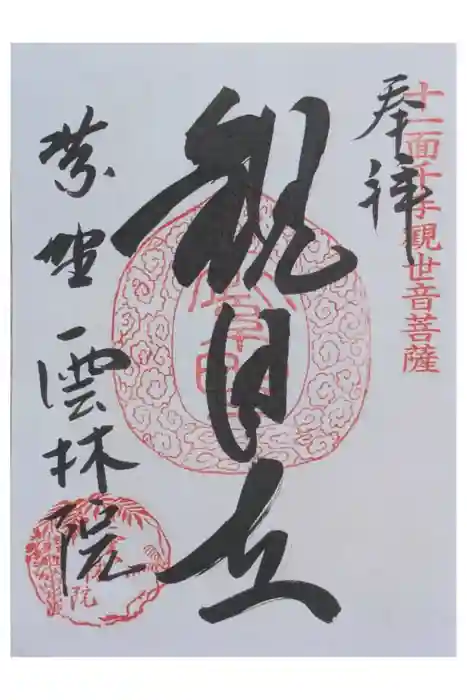 十一面千手觀世音菩薩
奉拝
観自在
紫野 雲林院
院